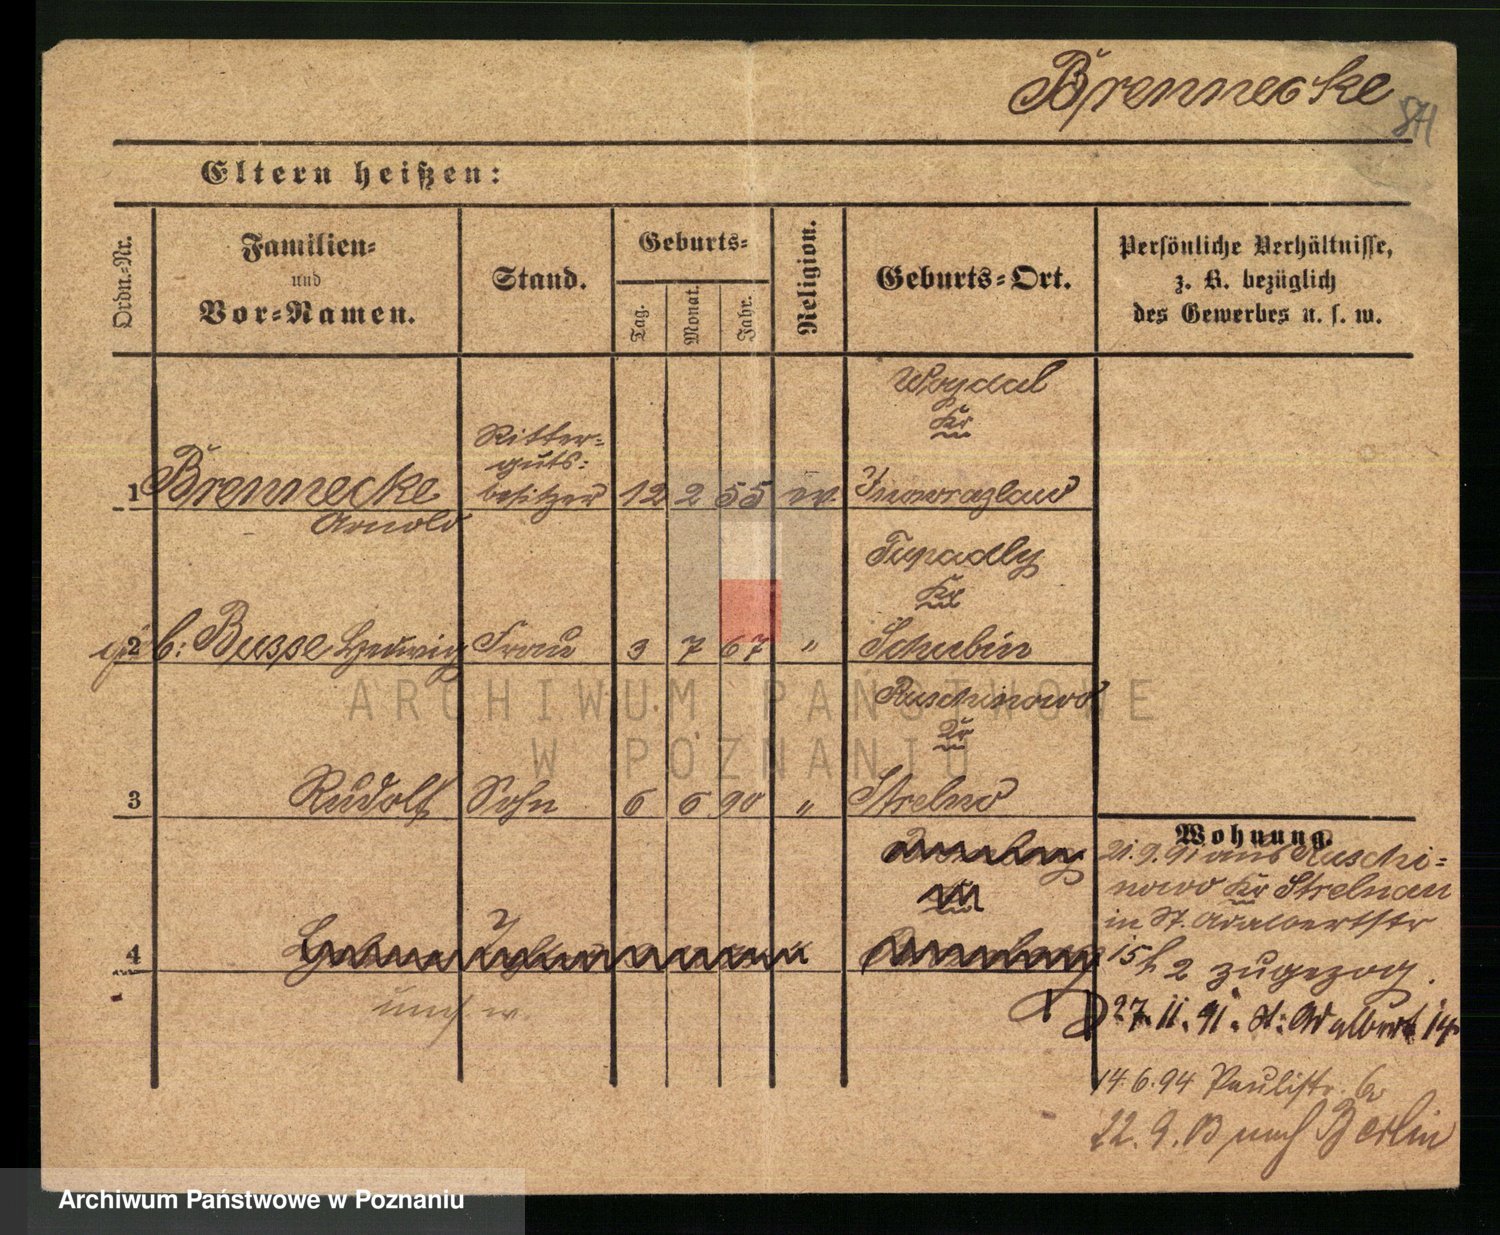 Brennecke
871
Eltern heißen:
Ordn.-Nr.
Familien-
und
Vor-Namen.
Stand.
Geburts-
Tag.
Monat.
Jahr.
Religion.
Geburts-Ort.
Persönliche Verhältnisse,
z. B. bezüglich
des Gewerbes u. s. w.
Woydal
Kr
Ritter-
guts-
1 Brennecke besitzer 12 2 55 ev Inowrazlaw
Arnold
Tupadly
Kr
2 geb: Busse Hedwig Frau 3 7 67 " Schubin
Ruschinowo
Kr
3 Rudolf Sohn 6 6 90 " Strelno
Wohnung.
21.9.91 aus Ruschi-
nowo Kr Strelno
in St. Adalbertstr
4 15 2 zugezog.
27.11.91. St: Adalbert 14
14.6.94 Paulistr.
22.9. nach Berlin
ARCHIWUM PAŃSTWOWE
W POZNANIU
Archiwum Państwowe w Poznaniu